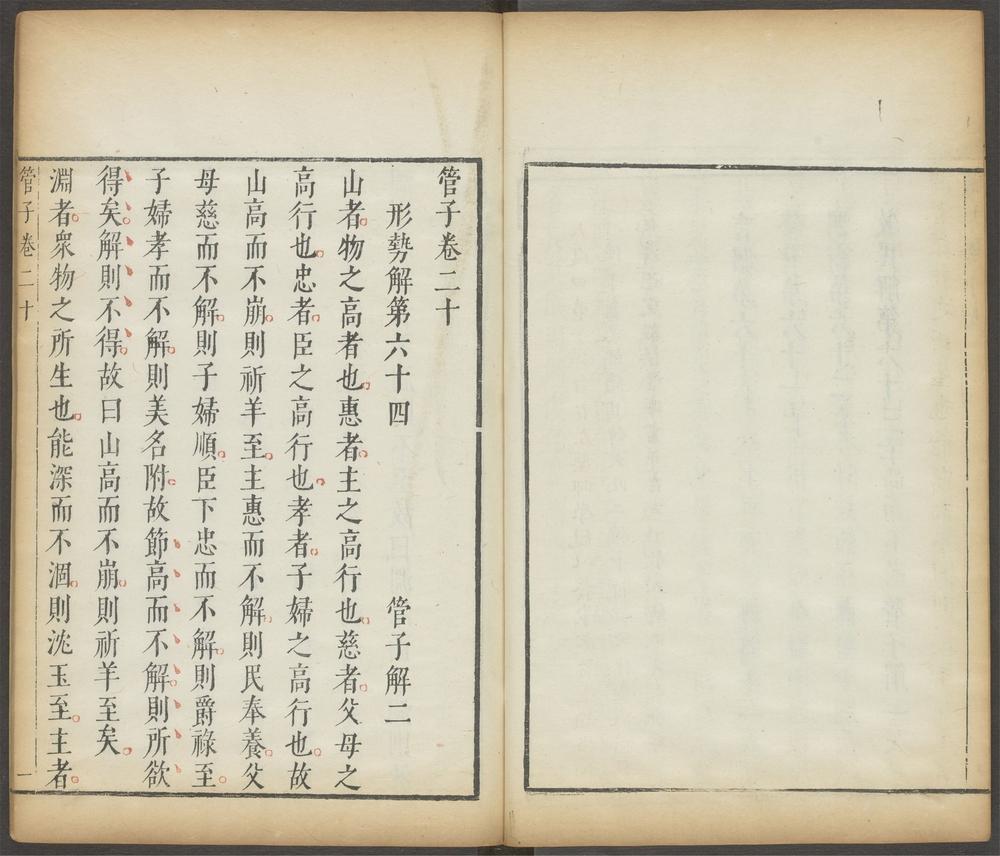 管子卷二十
形勢解第六十四 管子解二
山者物之高者也惠者主之高行也慈者父母之
高行也忠者臣之高行也孝者子婦之高行也故
山高而不崩則祈羊至主惠而不解則民奉養父
母慈而不解則子婦順臣下忠而不解則爵祿至
子婦孝而不解則美名附故節高而不解則所欲
得矣解則不得故曰山高而不崩則祈羊至矣
淵者衆物之所生也能深而不涸則沈玉至主者
管子卷二十 一